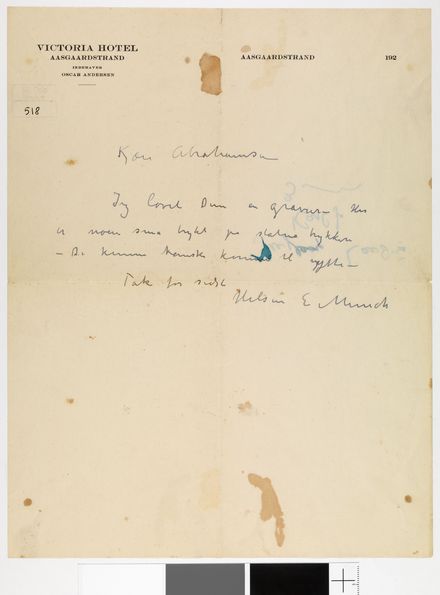 VICTORIA HOTEL
AASGAARDSTRAND
INNEHAVER
OSCAR ANDERSEN
AASGAARDSTRAND 192
518
Kjære Abrahamsen
Jeg lovet Dem en gravure Her
er noen små trykt på
– De kunne kanskje komme til nytte –
Tak for sidst
Hilsen E Munch